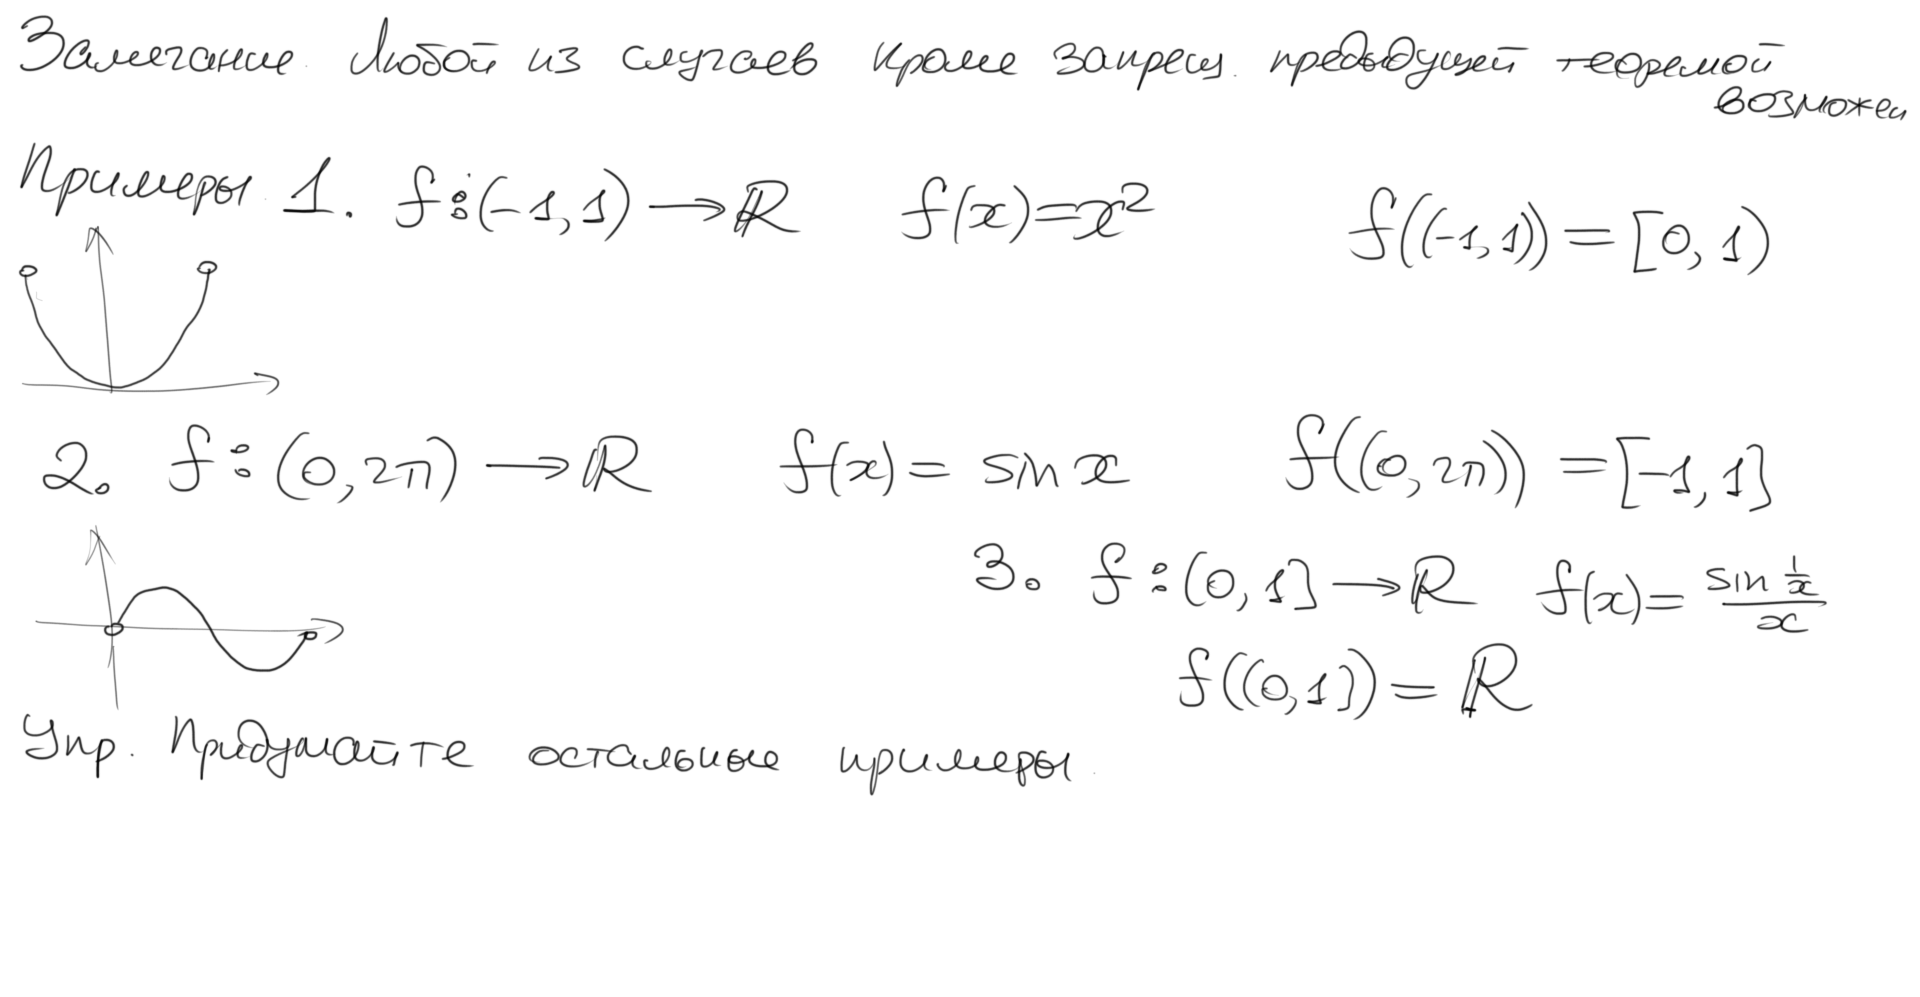 Замечание. Любой из случаев кроме запрещ. предыдущей теоремой
возможен
Примеры 1. f:(-1,1)→ℝ f(x)=x² f((-1,1))=[0,1)
2. f:(0,2π)→ℝ f(x)= sin x f((0,2π))=[-1,1]
3. f:(0,1]→ℝ f(x)= sin 1/x / x
f((0,1])=ℝ
Упр. Придумайте остальные примеры.